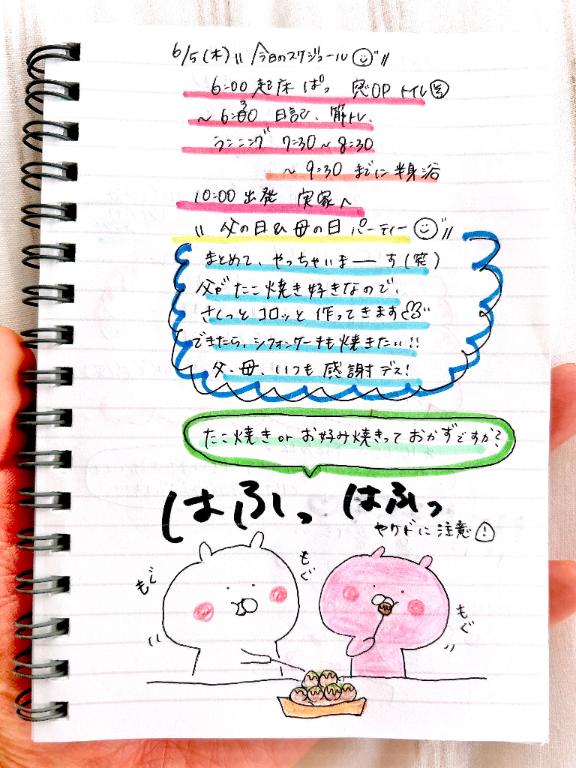 6/5(木) 〃今日のスケジュール〃
6:00 起床 ぱっ 窓OP トイレ
~ 6:30 日記、筋トレ、
ランニング 7:30~8:30
~ 9:30 までに半身浴
10:00 出発 実家へ
〃 父の日&母の日 パーティー 〃
まとめて、やっちゃいまーーす(笑)
父がたこ焼き好きなので、
さくっとコロッと作ってきます
できたら、シフォンケーキも焼きたい!!
父、母、いつも感謝デス!
たこ焼き or お好み焼きっておかずですか?
はふっ はふっ
ヤケドに注意!
もぐ
もぐ
もぐ